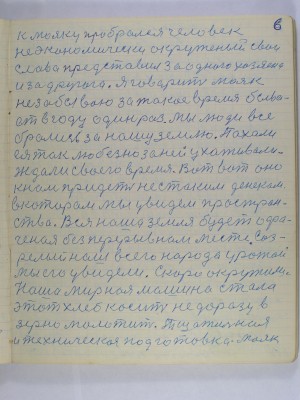 6
к маяку пробрался человек
не экономически окруженый свои
слова представил за одного хозяина
и за другого. Я говорит маяк
незабываю за такое время бывает
в году один раз мы люди все
брались за нашу землю. Пахали
ея так любезно за ней ухаживали
ждали своего время. Вот вот оно
к нам придет не с таким деньком
в котором мы увидем простран-
ства. Вся наша земля будет
беспрерывнам месте. Соз-
релый наш всего народа урожай
мы его увидели. Скоро окружим.
Наша мирная машина стала
этот хлеб косить не до разу в
зерно молотить. Тщательная
и техническая подготовка. маяк